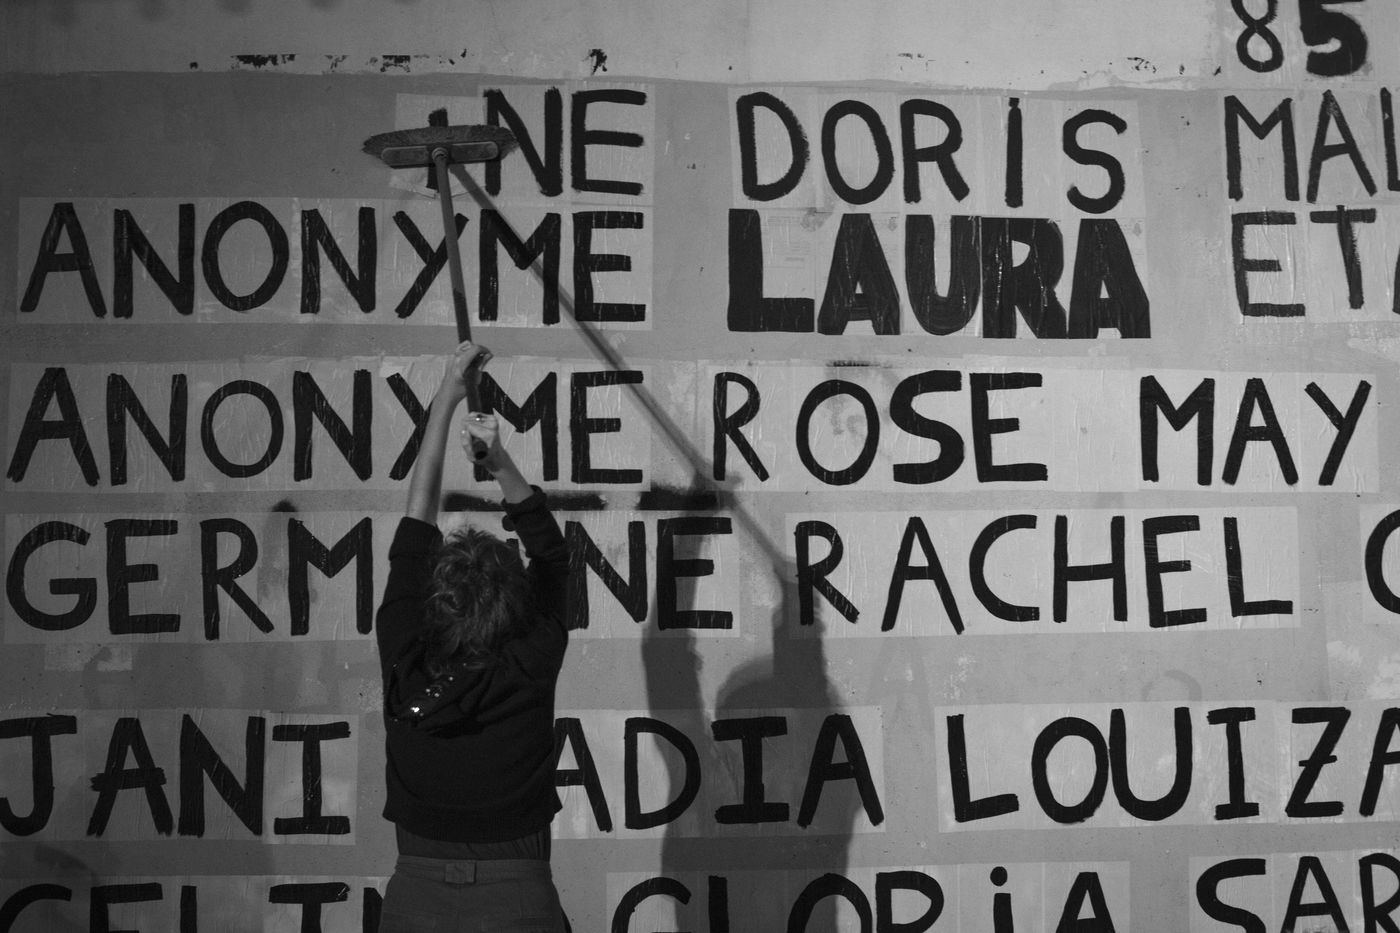 85
NE DORIS MAL
ANONYME LAURA ET
ANONYME ROSE MAY
GERM NE RACHEL
JANI ADIA LOUIZA
CELIN GLORIA SAR